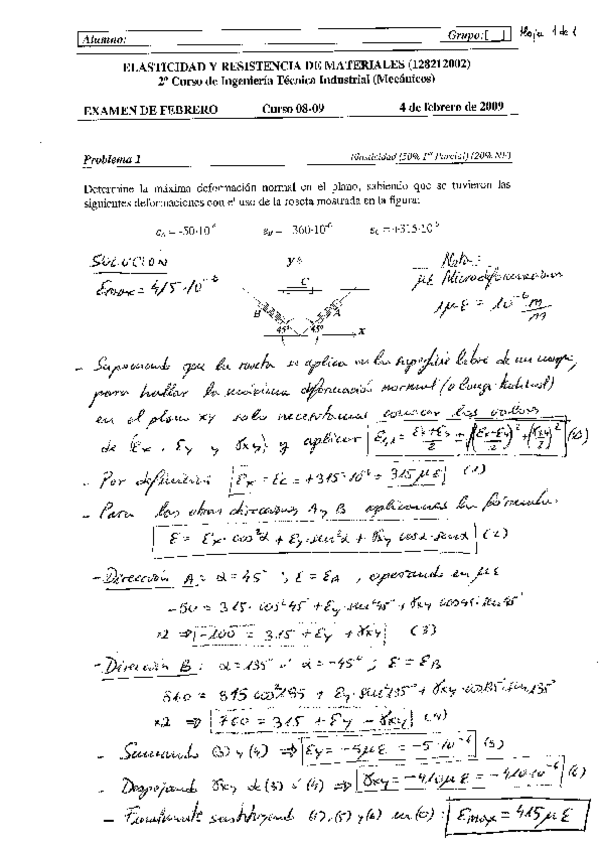 Alumno: Grupo:[ ] Hoja 1 de 1
ELASTICIDAD Y RESISTENCIA DE MATERIALES (128212002)
2º Curso de Ingeniería Técnica Industrial (Mecánicos)
EXAMEN DE FEBRERO Curso 08-09 4 de febrero de 2009
Problema 1 Elasticidad (50% 1er Parcial) (20% NF)
Determine la máxima deformación normal en el plano, sabiendo que se tuvieron las
siguientes deformaciones con el uso de la roseta mostrada en la figura:
εA = -50·10⁻⁶ εB = 360·10⁻⁶ εC = +315·10⁻⁶
SOLUCION
Emax = 415·10⁻⁶
Nota:
με Microdeformacion
με = 10⁻⁶ m/m
y
C
B A
45º 45º x
- Suponiendo que la roseta se aplica en la superficie libre de un cuerpo,
para hallar la máxima deformación normal (o longitudinal)
en el plano xy solo necesitamos conocer los valores
de εx, εy y γxy, y aplicar ε1,2 = (εx+εy)/2 ± √((εx-εy)/2)² + (γxy/2)² (0)
- Por definición εx = εC = +315·10⁻⁶ = 315 με (1)
- Para las otras direcciones A y B aplicamos la fórmula:
ε = εx·cos²α + εy·sen²α + γxy cosα·senα (2)
- Dirección A: α=45º ; ε = εA, operando en με
-50 = 315·cos²45 + εy·sen²45 + γxy cos45·sen45
x2 ⇒ -100 = 315 + εy + γxy (3)
- Dirección B: α=135º ó α=-45º ; ε = εB
360 = 315 cos²135 + εy·sen²135 + γxy·cos135·sen135
x2 ⇒ 720 = 315 + εy - γxy (4)
- Sumando (3) y (4) ⇒ εy = -5με = -5·10⁻⁶ (5)
- Despejando γxy de (3) ó (4) ⇒ γxy = -410με = -410·10⁻⁶ (6)
- Finalmente sustituyendo (1), (5) y (6) en (0): Emax = 415 με